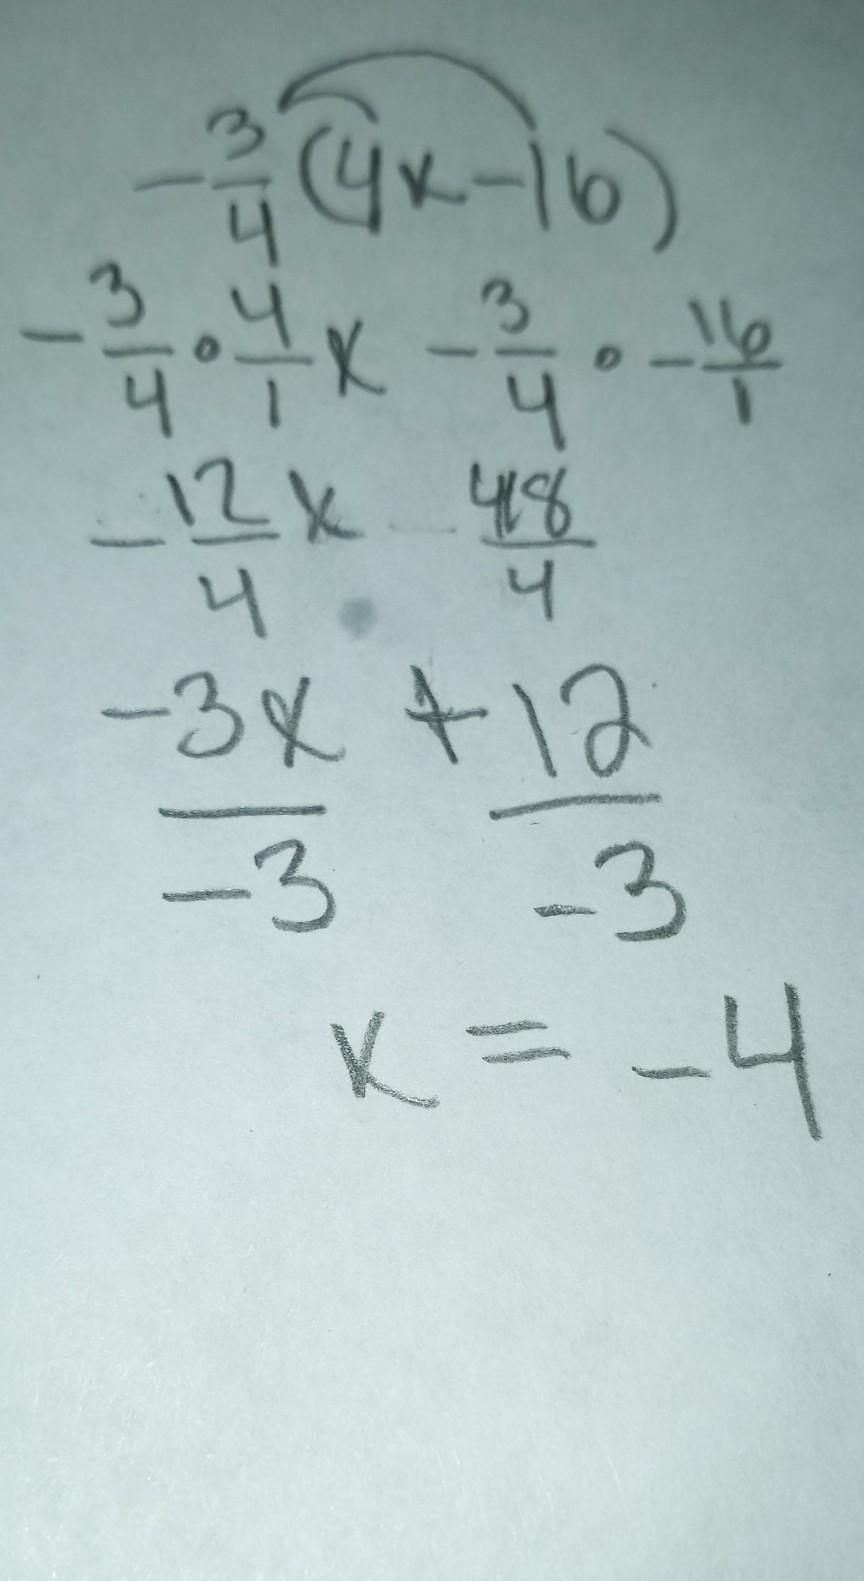 -3/4(4x-16)
-3/4 · 4/1 x -3/4 · -16/1
-12/4 x 48/4
-3x + 12
-3 -3
x = -4